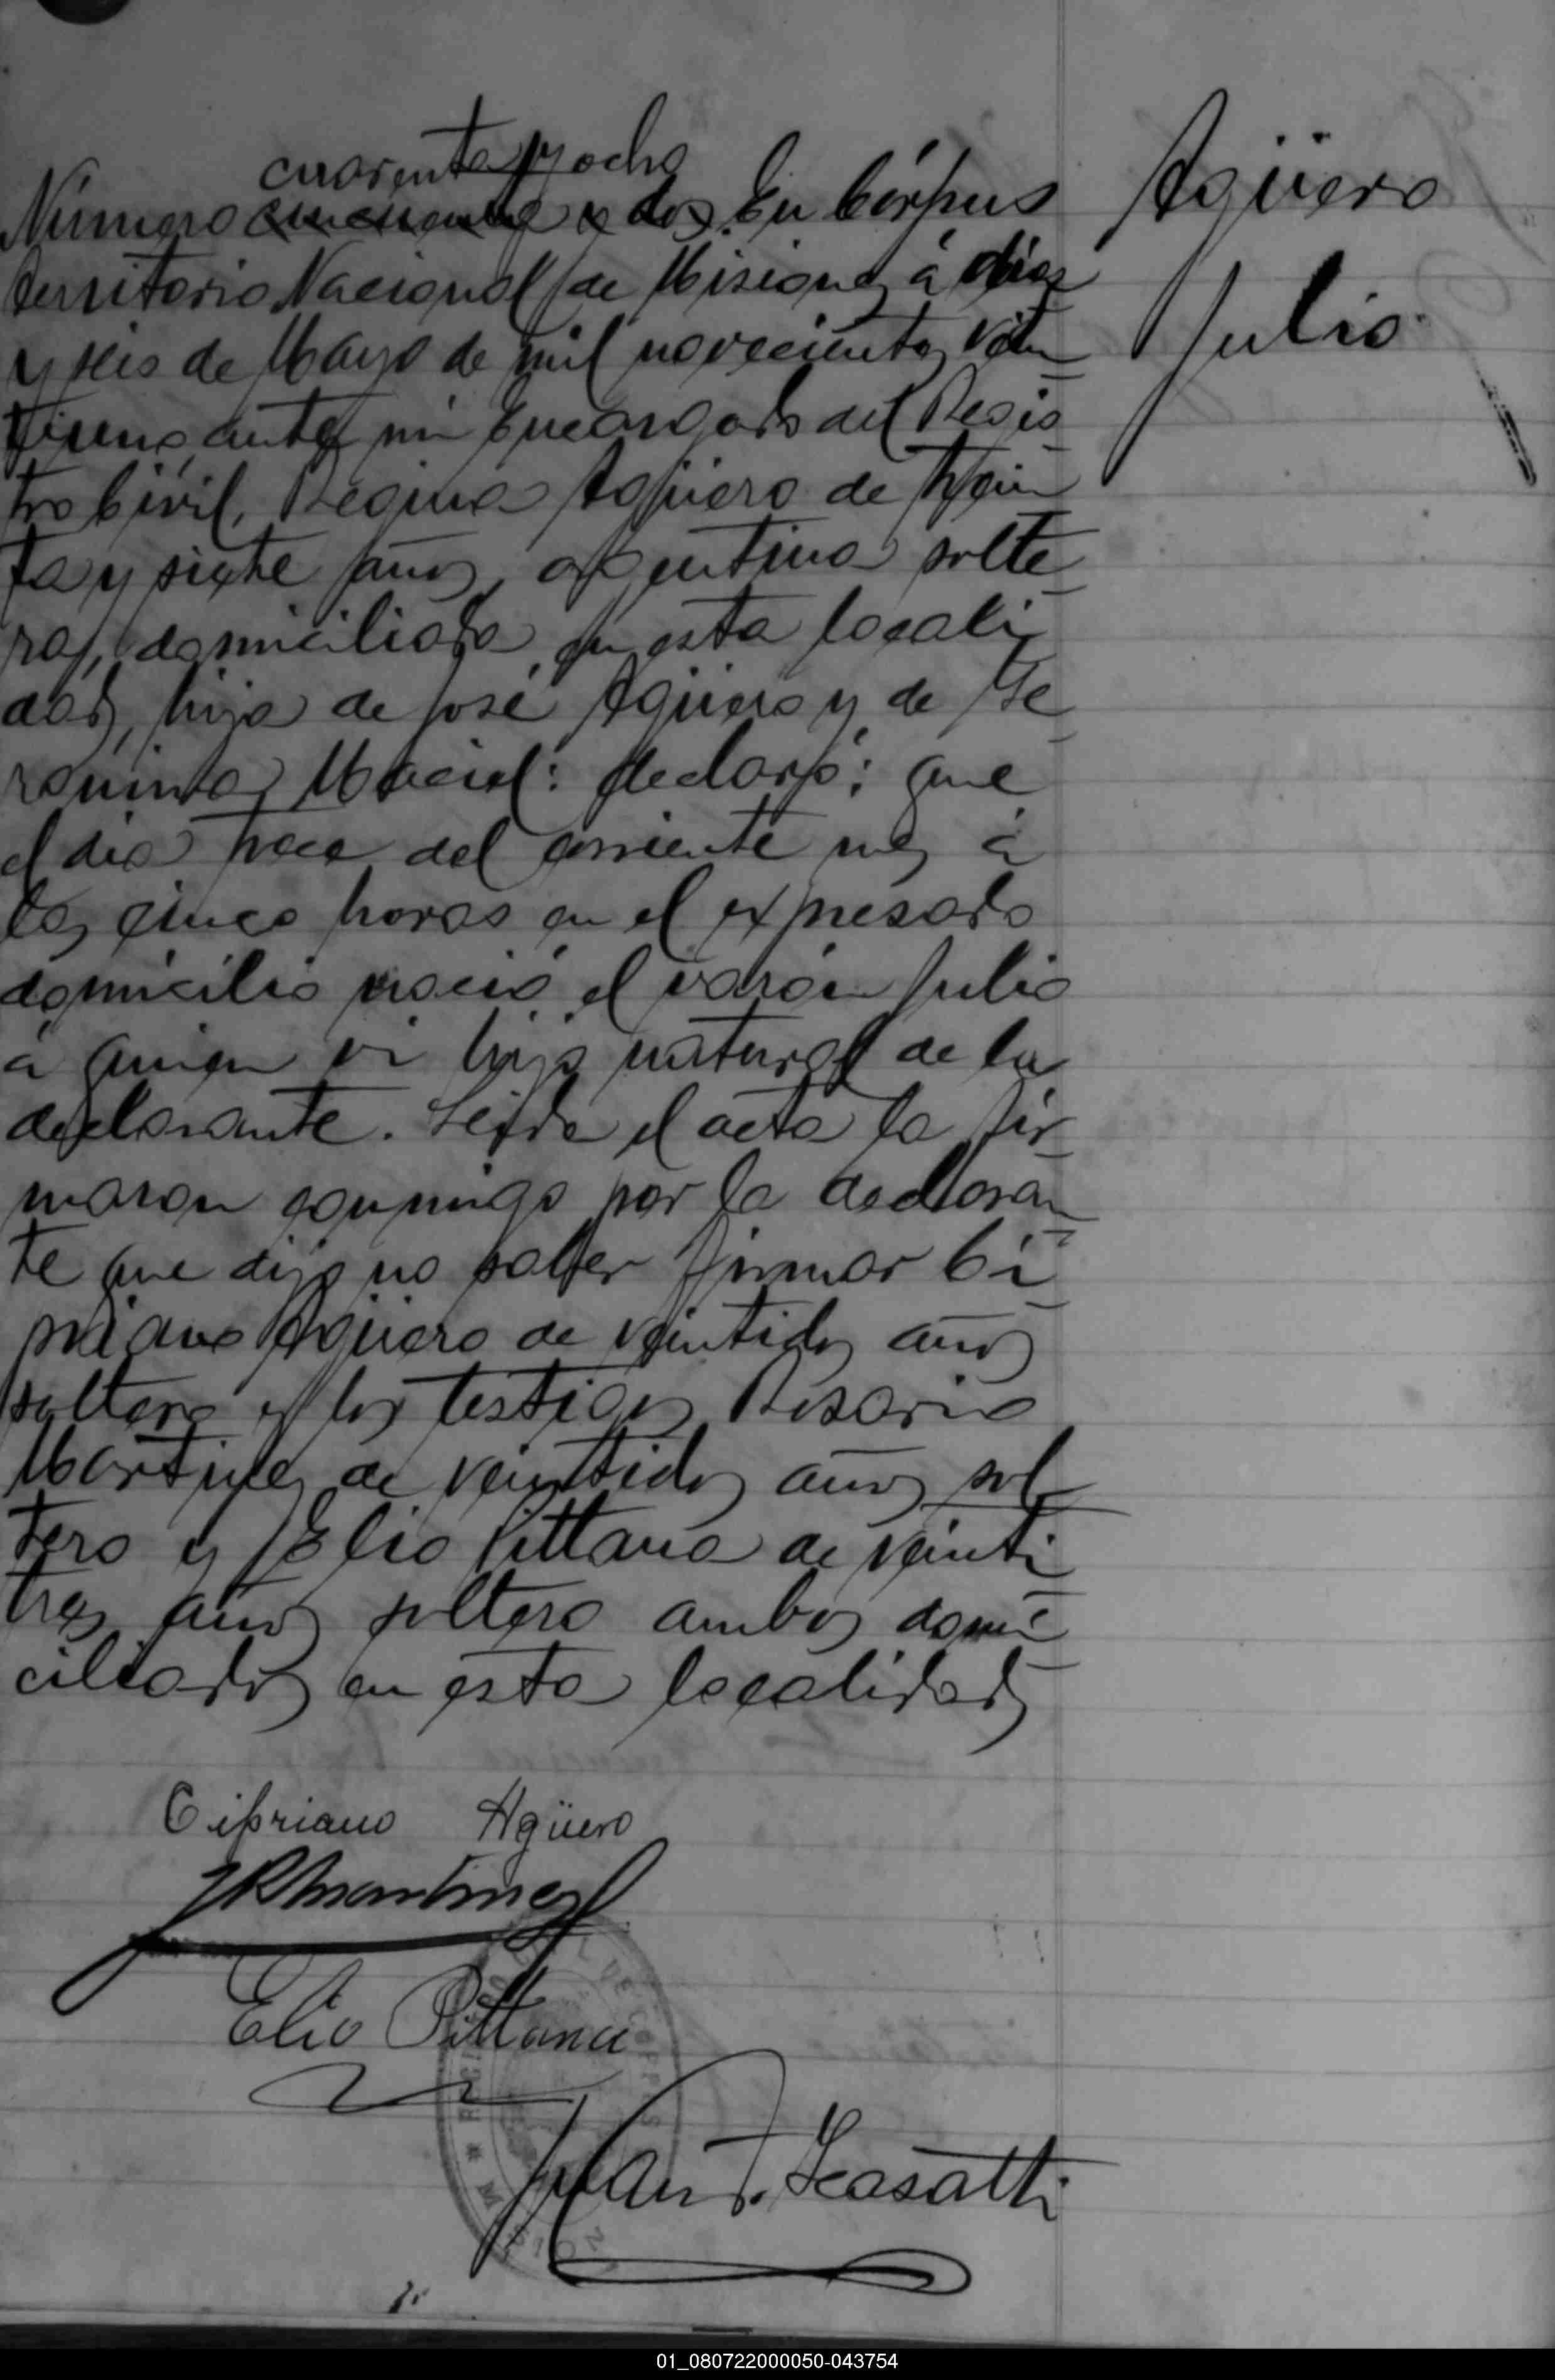 cuarenta y ocho
Número cincuenta y dos. En Córpus
Territorio Nacional de Misiones á dies
y seis de Mayo de mil novecientos vein
tiuno, ante mi Encargado del Regis
tro Civil, Regina Agüero de trein
ta y siete años, argentina solte
ra, domiciliada en esta locali
dad, hija de José Agüero y de Ge
ronima Maciel: declaró: que
el dia trece del corriente mes á
las cinco horas en el expresado
domicilio nació el varón Julio
á quien vi hijo natural de la
declarante. Leida el acta la fir
maron conmigo por la declaran
te que dijo no saber firmar Ci
priano Agüero de veintidos años
soltero y los testigos Rosario
Martinez de veintidos años sol
tero y Elio Pittana de veinti
tres años soltero ambos domi
ciliados en esta localidad
Agüero
Julio
Cipriano Agüero
JRMartinez
Elio Pittana
Juan T. Scasatti
01_080722000050-043754